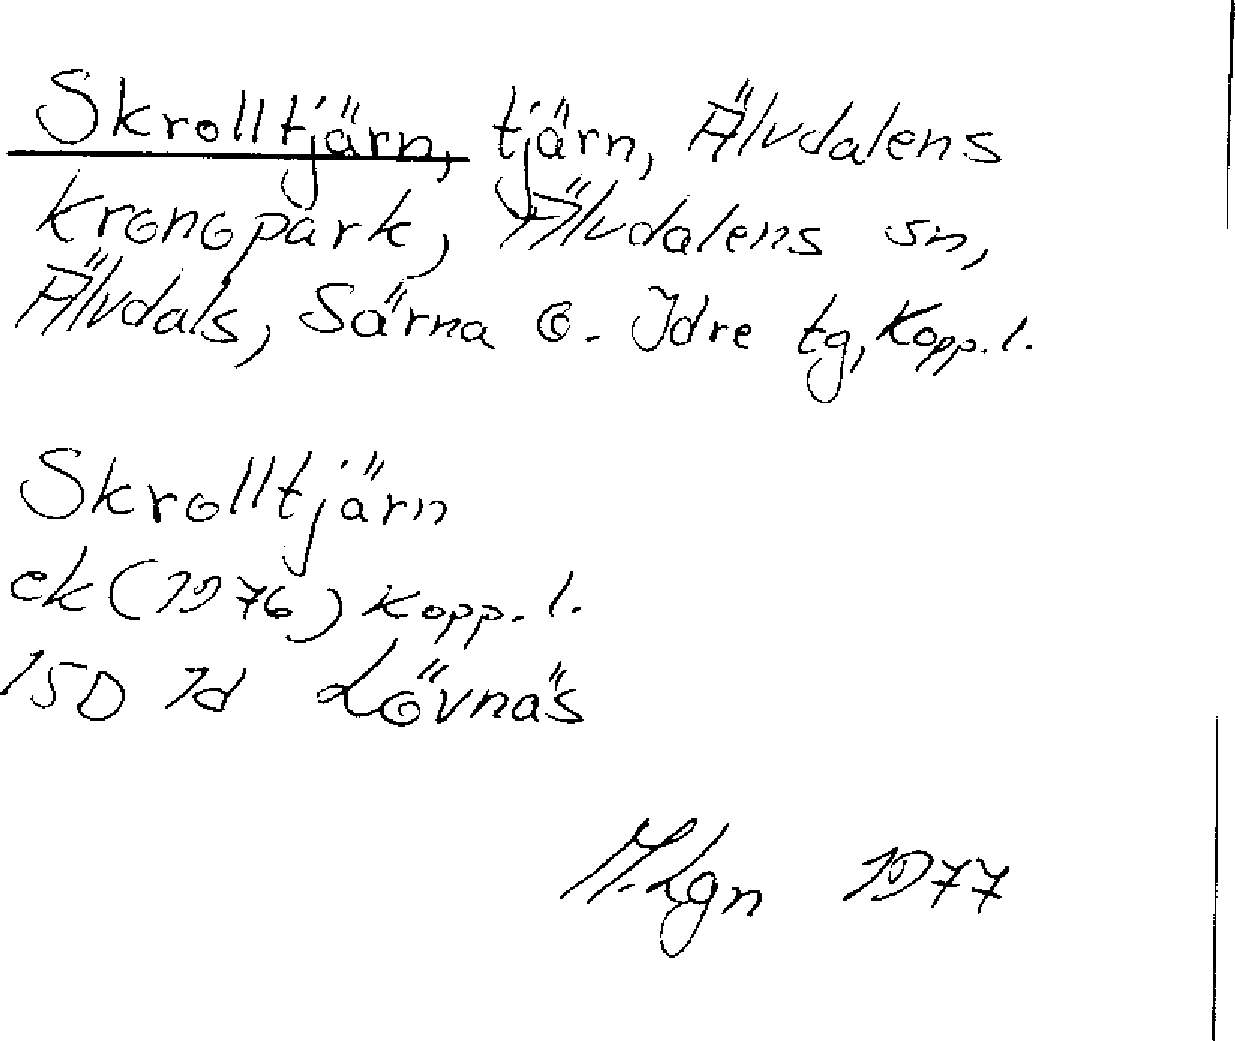 Skrolltjärn, tjärn, Älvdalens
kronopark, Älvdalens sn,
Älvdals, Särna o. Idre tg, Kopp. l.
Skrolltjärn
ek (1976) Kopp. l.
15D 1d Lövnäs
M. Lgn 1977